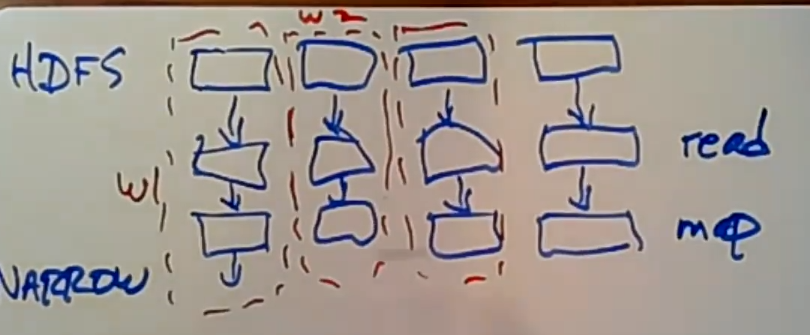 W2
HDFS
read
W1
map
NARROW